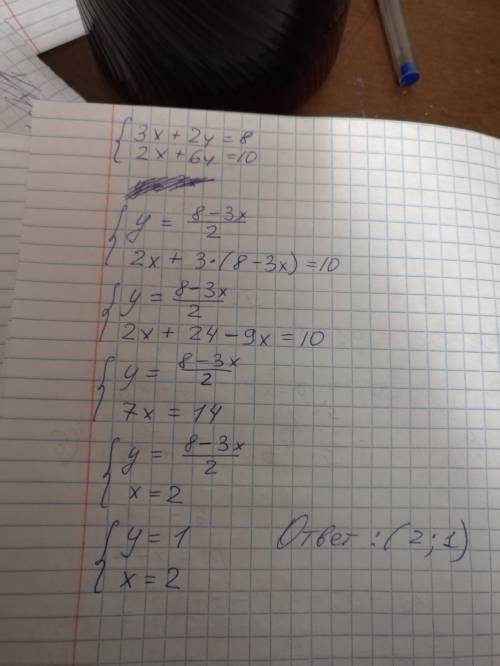 { 3x + 2y = 8
2x + 6y = 10
{ y = (8 - 3x)/2
2x + 3·(8 - 3x) = 10
{ y = (8 - 3x)/2
2x + 24 - 9x = 10
{ y = (8 - 3x)/2
7x = 14
{ y = (8 - 3x)/2
x = 2
{ y = 1 Ответ : (2; 1)
x = 2